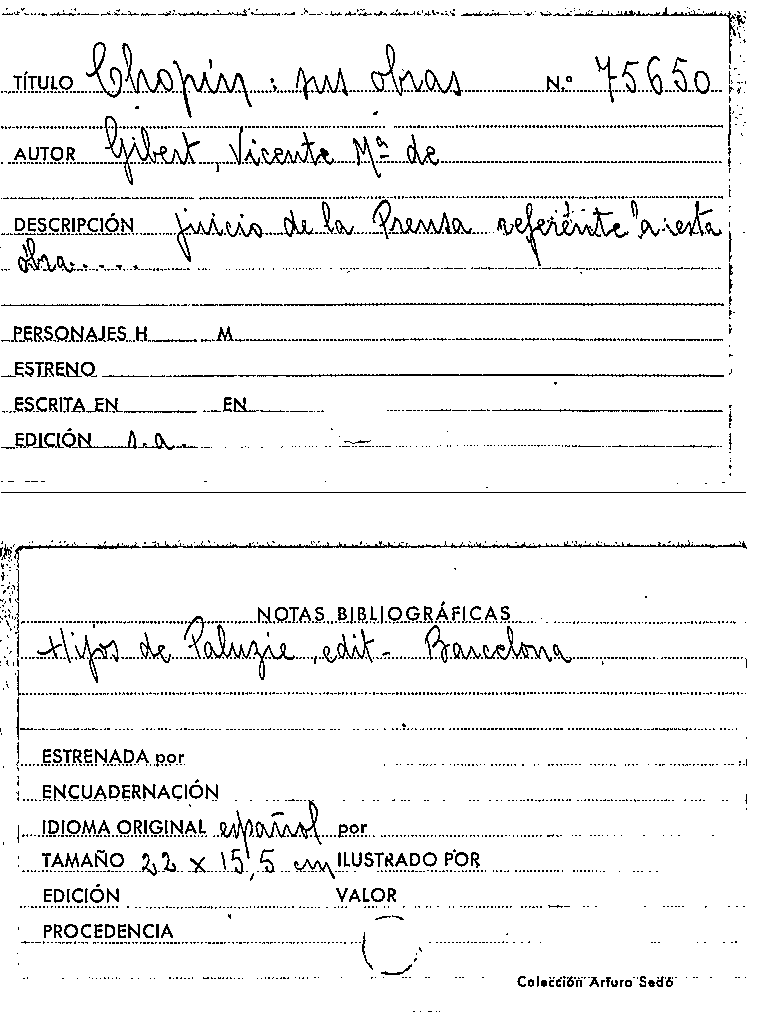 TÍTULO Chopin: sus obras N.º 75650
AUTOR Gibert, Vicente Mª de
DESCRIPCIÓN juicio de la Prensa referente a esta
obra.....
PERSONAJES H M
ESTRENO
ESCRITA EN EN
EDICIÓN s.a.
NOTAS BIBLIOGRÁFICAS
Hijos de Paluzie, edit- Barcelona
ESTRENADA por
ENCUADERNACIÓN
IDIOMA ORIGINAL español por
TAMAÑO 22 x 15,5 cm ILUSTRADO POR
EDICIÓN VALOR
PROCEDENCIA
Colección Arturo Sedó